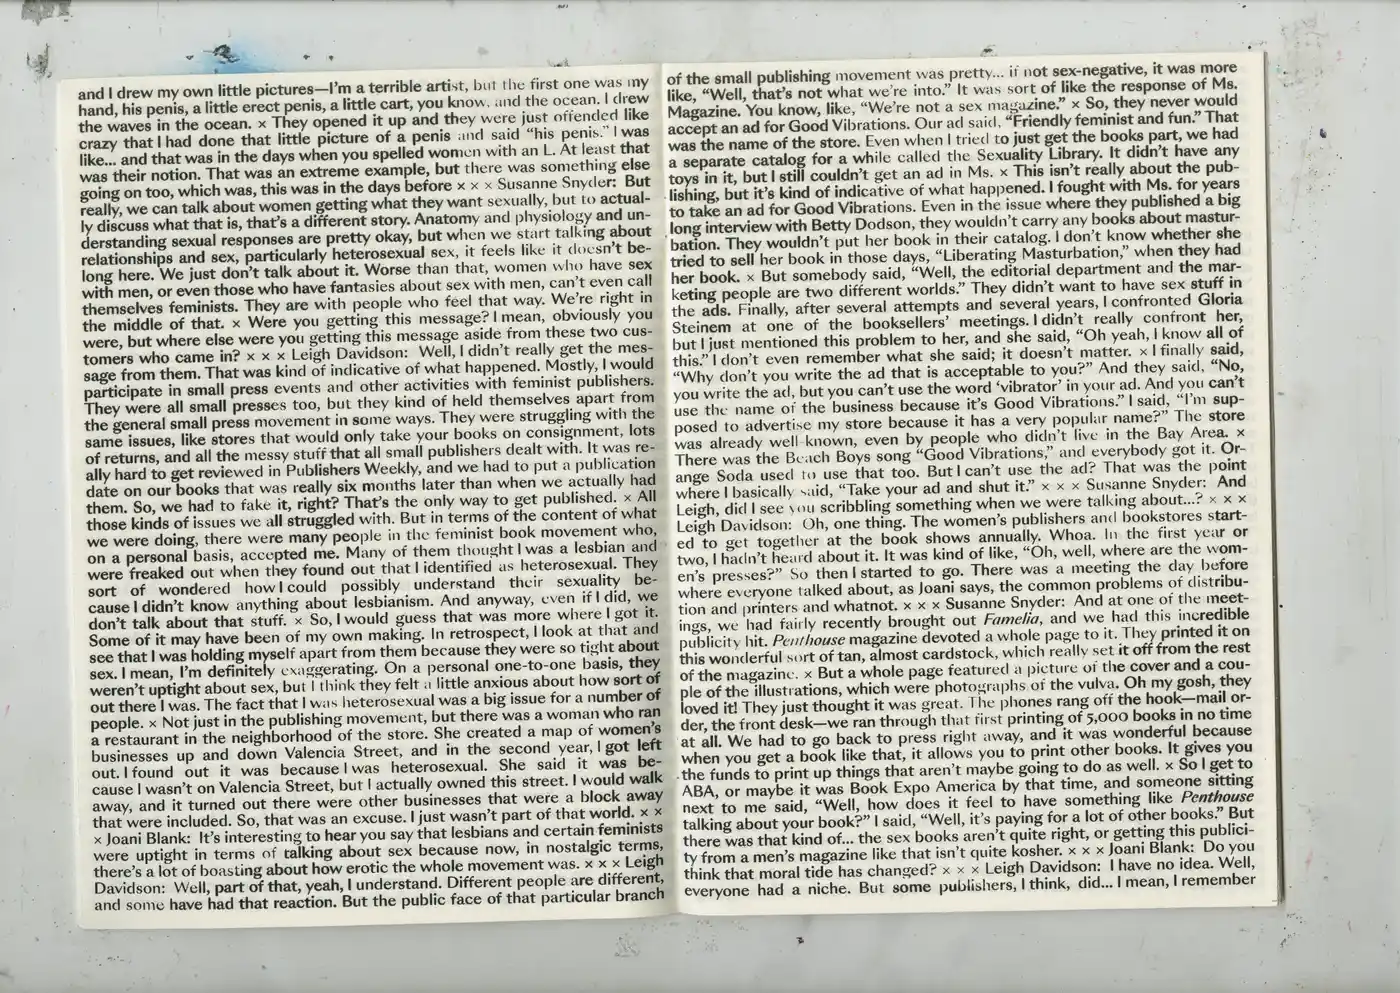 and I drew my own little pictures—I'm a terrible artist, but the first one was my
hand, his penis, a little erect penis, a little cart, you know, and the ocean. I drew
the waves in the ocean. × They opened it up and they were just offended like
crazy that I had done that little picture of a penis and said “his penis.” I was
like... and that was in the days when you spelled women with an L. At least that
was their notion. That was an extreme example, but there was something else
going on too, which was, this was in the days before × × × Susanne Snyder: But
really, we can talk about women getting what they want sexually, but to actual-
ly discuss what that is, that's a different story. Anatomy and physiology and un-
derstanding sexual responses are pretty okay, but when we start talking about
relationships and sex, particularly heterosexual sex, it feels like it doesn't be-
long here. We just don't talk about it. Worse than that, women who have sex
with men, or even those who have fantasies about sex with men, can't even call
themselves feminists. They are with people who feel that way. We're right in
the middle of that. × Were you getting this message? I mean, obviously you
were, but where else were you getting this message aside from these two cus-
tomers who came in? × × × Leigh Davidson: Well, I didn't really get the mes-
sage from them. That was kind of indicative of what happened. Mostly, I would
participate in small press events and other activities with feminist publishers.
They were all small presses too, but they kind of held themselves apart from
the general small press movement in some ways. They were struggling with the
same issues, like stores that would only take your books on consignment, lots
of returns, and all the messy stuff that all small publishers dealt with. It was re-
ally hard to get reviewed in Publishers Weekly, and we had to put a publication
date on our books that was really six months later than when we actually had
them. So, we had to fake it, right? That's the only way to get published. × All
those kinds of issues we all struggled with. But in terms of the content of what
we were doing, there were many people in the feminist book movement who,
on a personal basis, accepted me. Many of them thought I was a lesbian and
were freaked out when they found out that I identified as heterosexual. They
sort of wondered how I could possibly understand their sexuality be-
cause I didn't know anything about lesbianism. And anyway, even if I did, we
don't talk about that stuff. × So, I would guess that was more where I got it.
Some of it may have been of my own making. In retrospect, I look at that and
see that I was holding myself apart from them because they were so tight about
sex. I mean, I'm definitely exaggerating. On a personal one-to-one basis, they
weren't uptight about sex, but I think they felt a little anxious about how sort of
out there I was. The fact that I was heterosexual was a big issue for a number of
people. × Not just in the publishing movement, but there was a woman who ran
a restaurant in the neighborhood of the store. She created a map of women's
businesses up and down Valencia Street, and in the second year, I got left
out. I found out it was because I was heterosexual. She said it was be-
cause I wasn't on Valencia Street, but I actually owned this street. I would walk
away, and it turned out there were other businesses that were a block away
that were included. So, that was an excuse. I just wasn't part of that world. × ×
× Joani Blank: It's interesting to hear you say that lesbians and certain feminists
were uptight in terms of talking about sex because now, in nostalgic terms,
there's a lot of boasting about how erotic the whole movement was. × × × Leigh
Davidson: Well, part of that, yeah, I understand. Different people are different,
and some have had that reaction. But the public face of that particular branch
of the small publishing movement was pretty... if not sex-negative, it was more
like, “Well, that's not what we're into.” It was sort of like the response of Ms.
Magazine. You know, like, “We're not a sex magazine.” × So, they never would
accept an ad for Good Vibrations. Our ad said, “Friendly feminist and fun.” That
was the name of the store. Even when I tried to just get the books part, we had
a separate catalog for a while called the Sexuality Library. It didn't have any
toys in it, but I still couldn't get an ad in Ms. × This isn't really about the pub-
lishing, but it's kind of indicative of what happened. I fought with Ms. for years
to take an ad for Good Vibrations. Even in the issue where they published a big
long interview with Betty Dodson, they wouldn't carry any books about mastur-
bation. They wouldn't put her book in their catalog. I don't know whether she
tried to sell her book in those days, “Liberating Masturbation,” when they had
her book. × But somebody said, “Well, the editorial department and the mar-
keting people are two different worlds.” They didn't want to have sex stuff in
the ads. Finally, after several attempts and several years, I confronted Gloria
Steinem at one of the booksellers' meetings. I didn't really confront her,
but I just mentioned this problem to her, and she said, “Oh yeah, I know all of
this.” I don't even remember what she said; it doesn't matter. × I finally said,
“Why don't you write the ad that is acceptable to you?” And they said, “No,
you write the ad, but you can't use the word ‘vibrator’ in your ad. And you can't
use the name of the business because it's Good Vibrations.” I said, “I'm sup-
posed to advertise my store because it has a very popular name?” The store
was already well-known, even by people who didn't live in the Bay Area. ×
There was the Beach Boys song “Good Vibrations,” and everybody got it. Or-
ange Soda used to use that too. But I can't use the ad? That was the point
where I basically said, “Take your ad and shut it.” × × × Susanne Snyder: And
Leigh, did I see you scribbling something when we were talking about...? × × ×
Leigh Davidson: Oh, one thing. The women's publishers and bookstores start-
ed to get together at the book shows annually. Whoa. In the first year or
two, I hadn't heard about it. It was kind of like, “Oh, well, where are the wom-
en's presses?” So then I started to go. There was a meeting the day before
where everyone talked about, as Joani says, the common problems of distribu-
tion and printers and whatnot. × × × Susanne Snyder: And at one of the meet-
ings, we had fairly recently brought out Famelia, and we had this incredible
publicity hit. Penthouse magazine devoted a whole page to it. They printed it on
this wonderful sort of tan, almost cardstock, which really set it off from the rest
of the magazine. × But a whole page featured a picture of the cover and a cou-
ple of the illustrations, which were photographs of the vulva. Oh my gosh, they
loved it! They just thought it was great. The phones rang off the hook—mail or-
der, the front desk—we ran through that first printing of 5,000 books in no time
at all. We had to go back to press right away, and it was wonderful because
when you get a book like that, it allows you to print other books. It gives you
the funds to print up things that aren't maybe going to do as well. × So I get to
ABA, or maybe it was Book Expo America by that time, and someone sitting
next to me said, “Well, how does it feel to have something like Penthouse
talking about your book?” I said, “Well, it's paying for a lot of other books.” But
there was that kind of... the sex books aren't quite right, or getting this publici-
ty from a men's magazine like that isn't quite kosher. × × × Joani Blank: Do you
think that moral tide has changed? × × × Leigh Davidson: I have no idea. Well,
everyone had a niche. But some publishers, I think, did... I mean, I remember